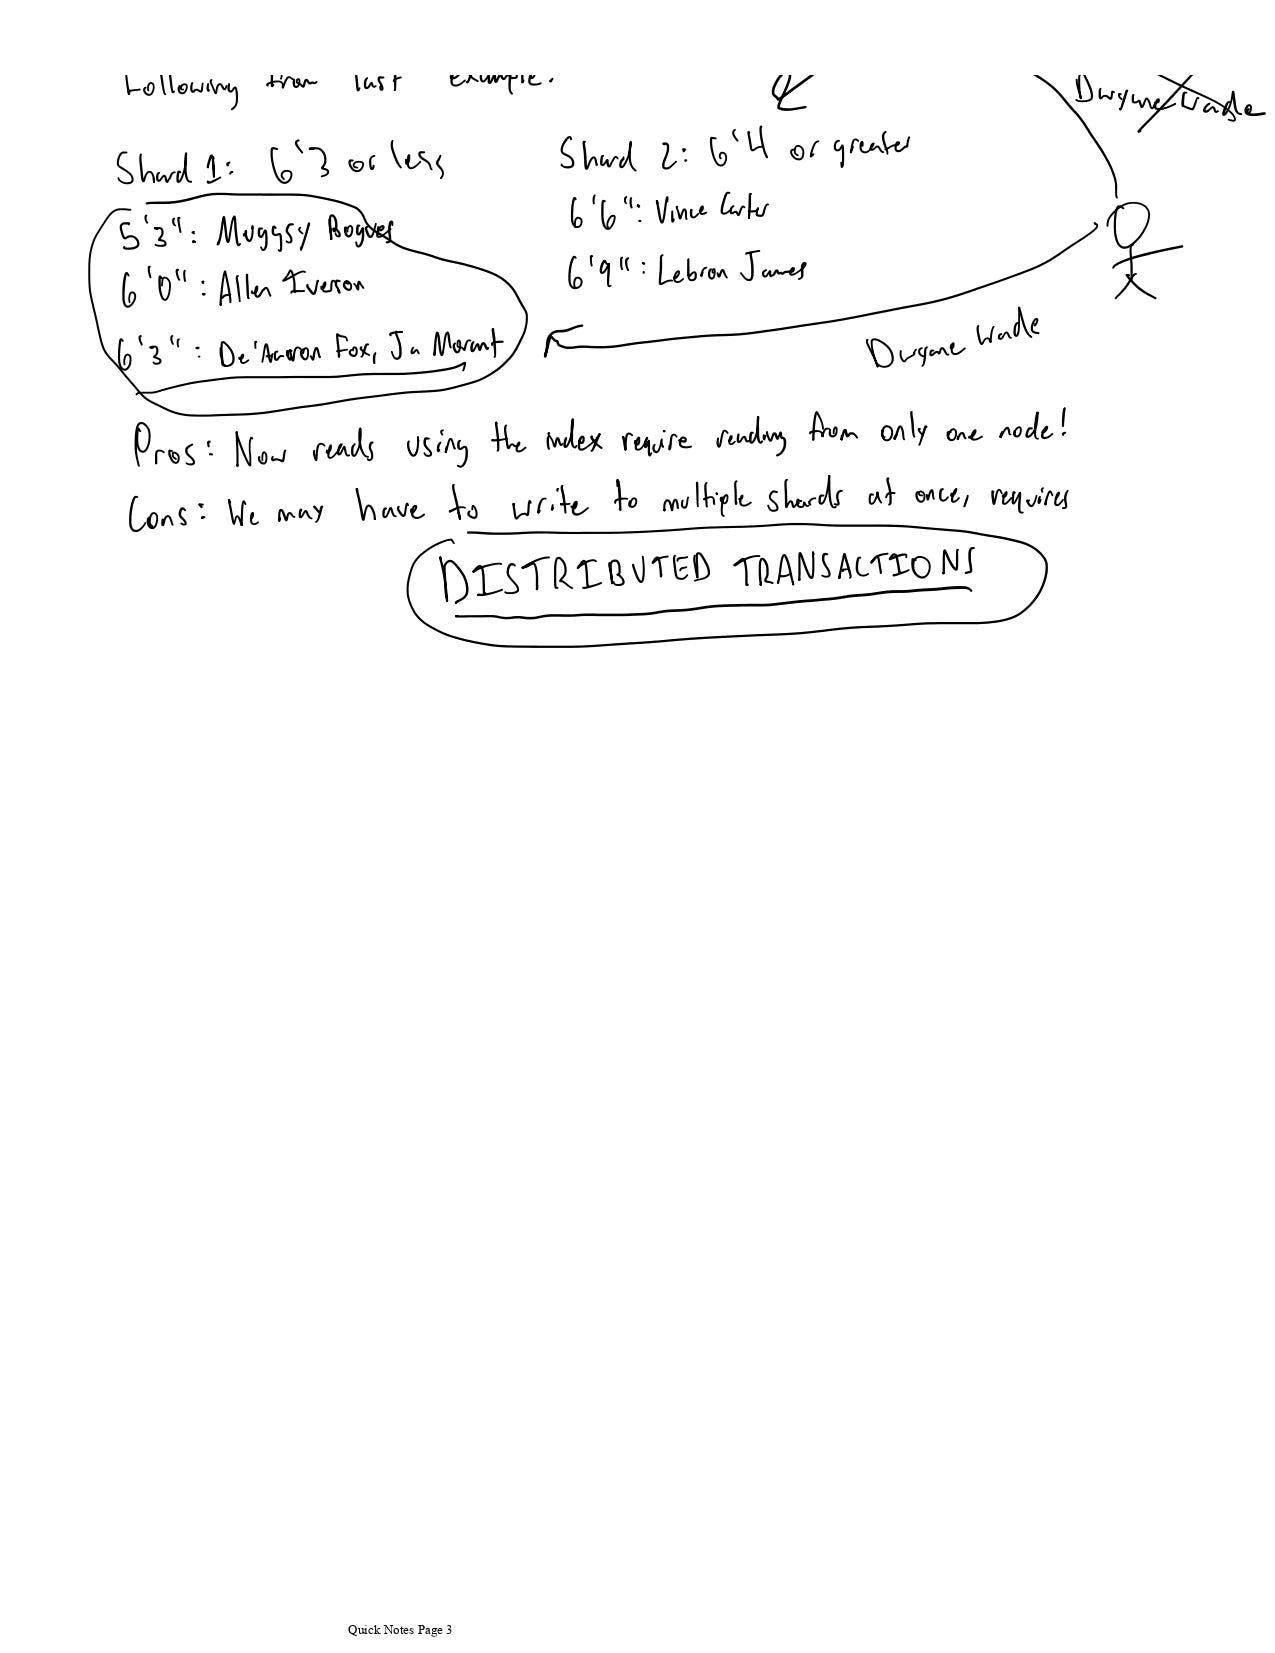 Following from last example:
Dwyane Wade
Shard 1: 6'3 or less
Shard 2: 6'4 or greater
5'3": Muggsy Bogues
6'6": Vince Carter
6'0": Allen Iverson
6'9": Lebron James
6'3": De'Aaron Fox, Ja Morant
Dwyane Wade
Pros: Now reads using the index require reading from only one node!
Cons: We may have to write to multiple shards at once, requires
DISTRIBUTED TRANSACTIONS
Quick Notes Page 3